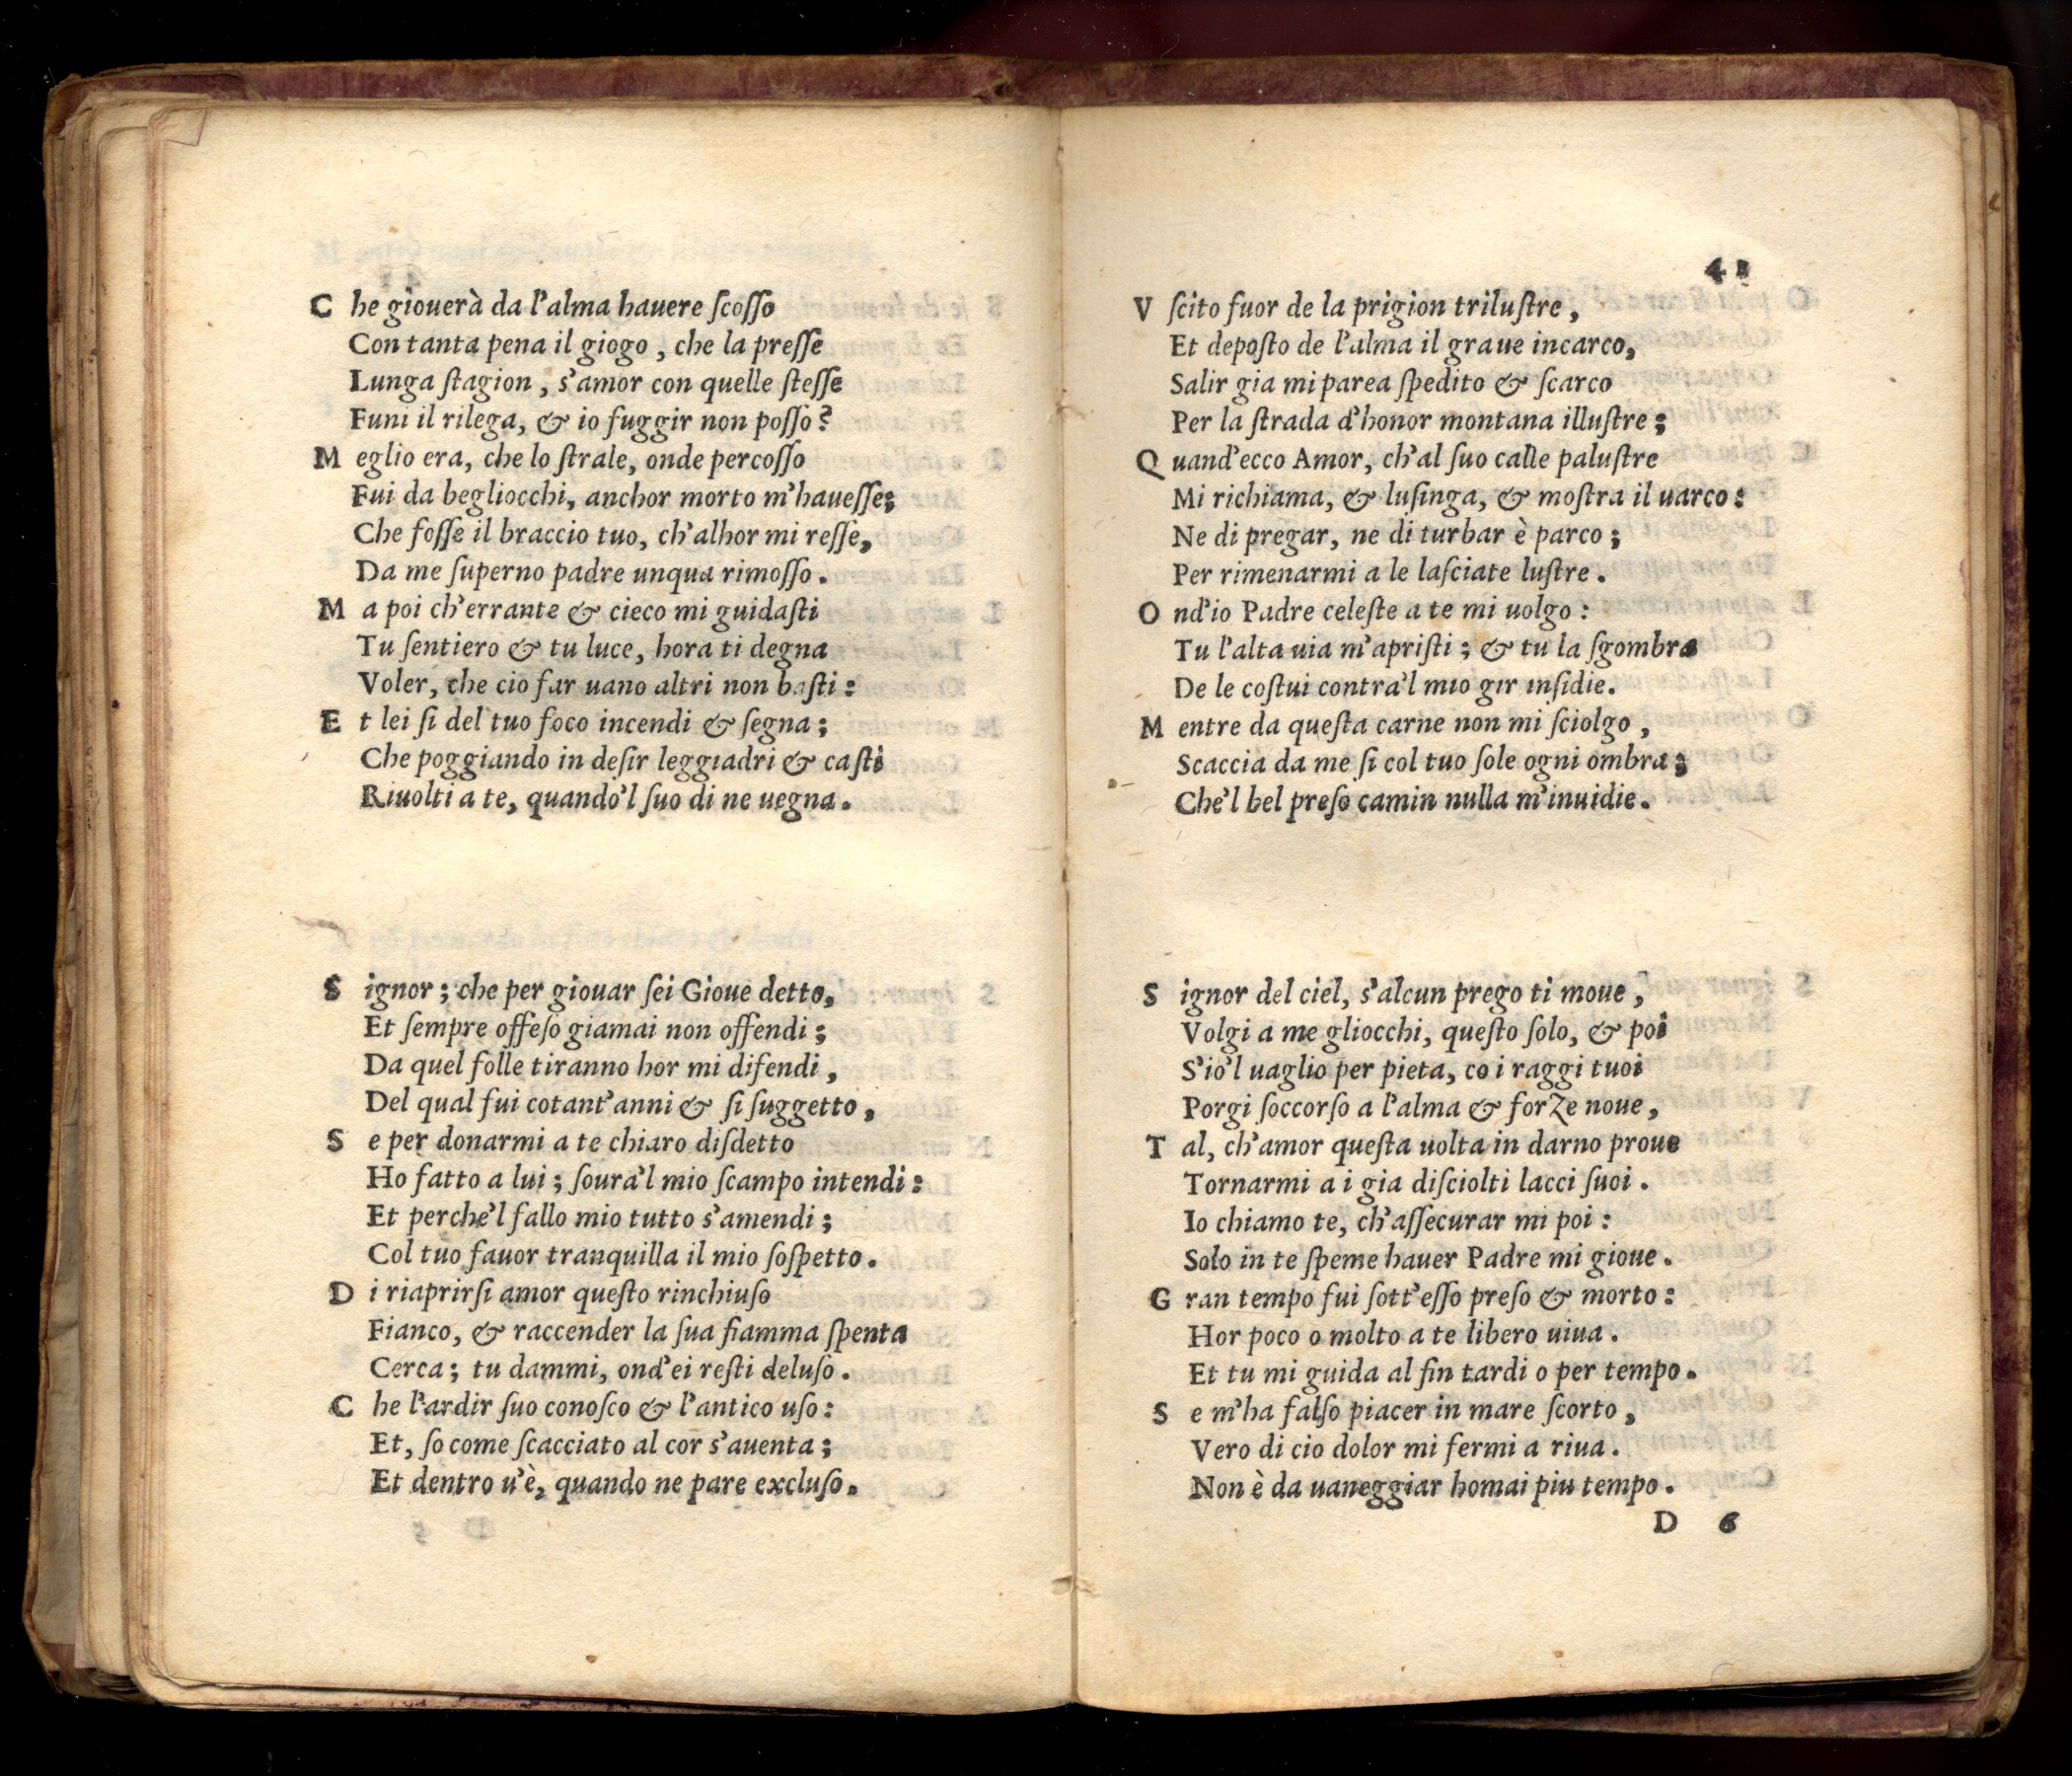 C he giouerà da l'alma hauere ſcoſſo
Con tanta pena il giogo, che la preſſe
Lunga ſtagion, s'amor con quelle ſteſſe
Funi il rilega, & io fuggir non poſſo?
M eglio era, che lo ſtrale, onde percoſſo
Fui da begliocchi, anchor morto m'haueſſe;
Che foſſe il braccio tuo, ch'alhor mi reſſe,
Da me ſuperno padre unqua rimoſſo.
M a poi ch'errante & cieco mi guidaſti
Tu ſentiero & tu luce, hora ti degna
Voler, che cio far uano altri non baſti:
E t lei ſi del tuo foco incendi & ſegna;
Che poggiando in deſir leggiadri & caſti
Riuolti a te, quando'l ſuo di ne uegna.
S ignor; che per giouar ſei Gioue detto,
Et ſempre offeſo giamai non offendi;
Da quel folle tiranno hor mi difendi,
Del qual fui cotant'anni & ſi ſuggetto,
S e per donarmi a te chiaro diſdetto
Ho fatto a lui; ſoura'l mio ſcampo intendi:
Et perche'l fallo mio tutto s'amendi;
Col tuo fauor tranquilla il mio ſoſpetto.
D i riaprirſi amor queſto rinchiuſo
Fianco, & raccender la ſua fiamma ſpenta
Cerca; tu dammi, ond'ei reſti deluſo.
C he l'ardir ſuo conoſco & l'antico uſo:
Et, ſo come ſcacciato al cor s'auenta;
Et dentro u'è, quando ne pare excluſo.
41
V ſcito fuor de la prigion triluſtre,
Et depoſto de l'alma il graue incarco,
Salir gia mi parea ſpedito & ſcarco
Per la ſtrada d'honor montana illuſtre;
Q uand'ecco Amor, ch'al ſuo calle paluſtre
Mi richiama, & luſinga, & moſtra il uarco:
Ne di pregar, ne di turbar è parco;
Per rimenarmi a le laſciate luſtre.
O nd'io Padre celeſte a te mi uolgo:
Tu l'alta uia m'apriſti; & tu la ſgombra
De le coſtui contra'l mio gir inſidie.
M entre da queſta carne non mi ſciolgo,
Scaccia da me ſi col tuo ſole ogni ombra;
Che'l bel preſo camin nulla m'inuidie.
S ignor del ciel, s'alcun prego ti moue,
Volgi a me gliocchi, queſto ſolo, & poi
S'io'l uaglio per pieta, co i raggi tuoi
Porgi ſoccorſo a l'alma & forze noue,
T al, ch'amor queſta uolta in darno proue
Tornarmi a i gia diſciolti lacci ſuoi.
Io chiamo te, ch'aſſecurar mi poi:
Solo in te ſpeme hauer Padre mi gioue.
G ran tempo fui ſott'eſſo preſo & morto:
Hor poco o molto a te libero uiua.
Et tu mi guida al fin tardi o per tempo.
S e m'ha falſo piacer in mare ſcorto,
Vero di cio dolor mi fermi a riua.
Non è da uaneggiar homai piu tempo.
D 6